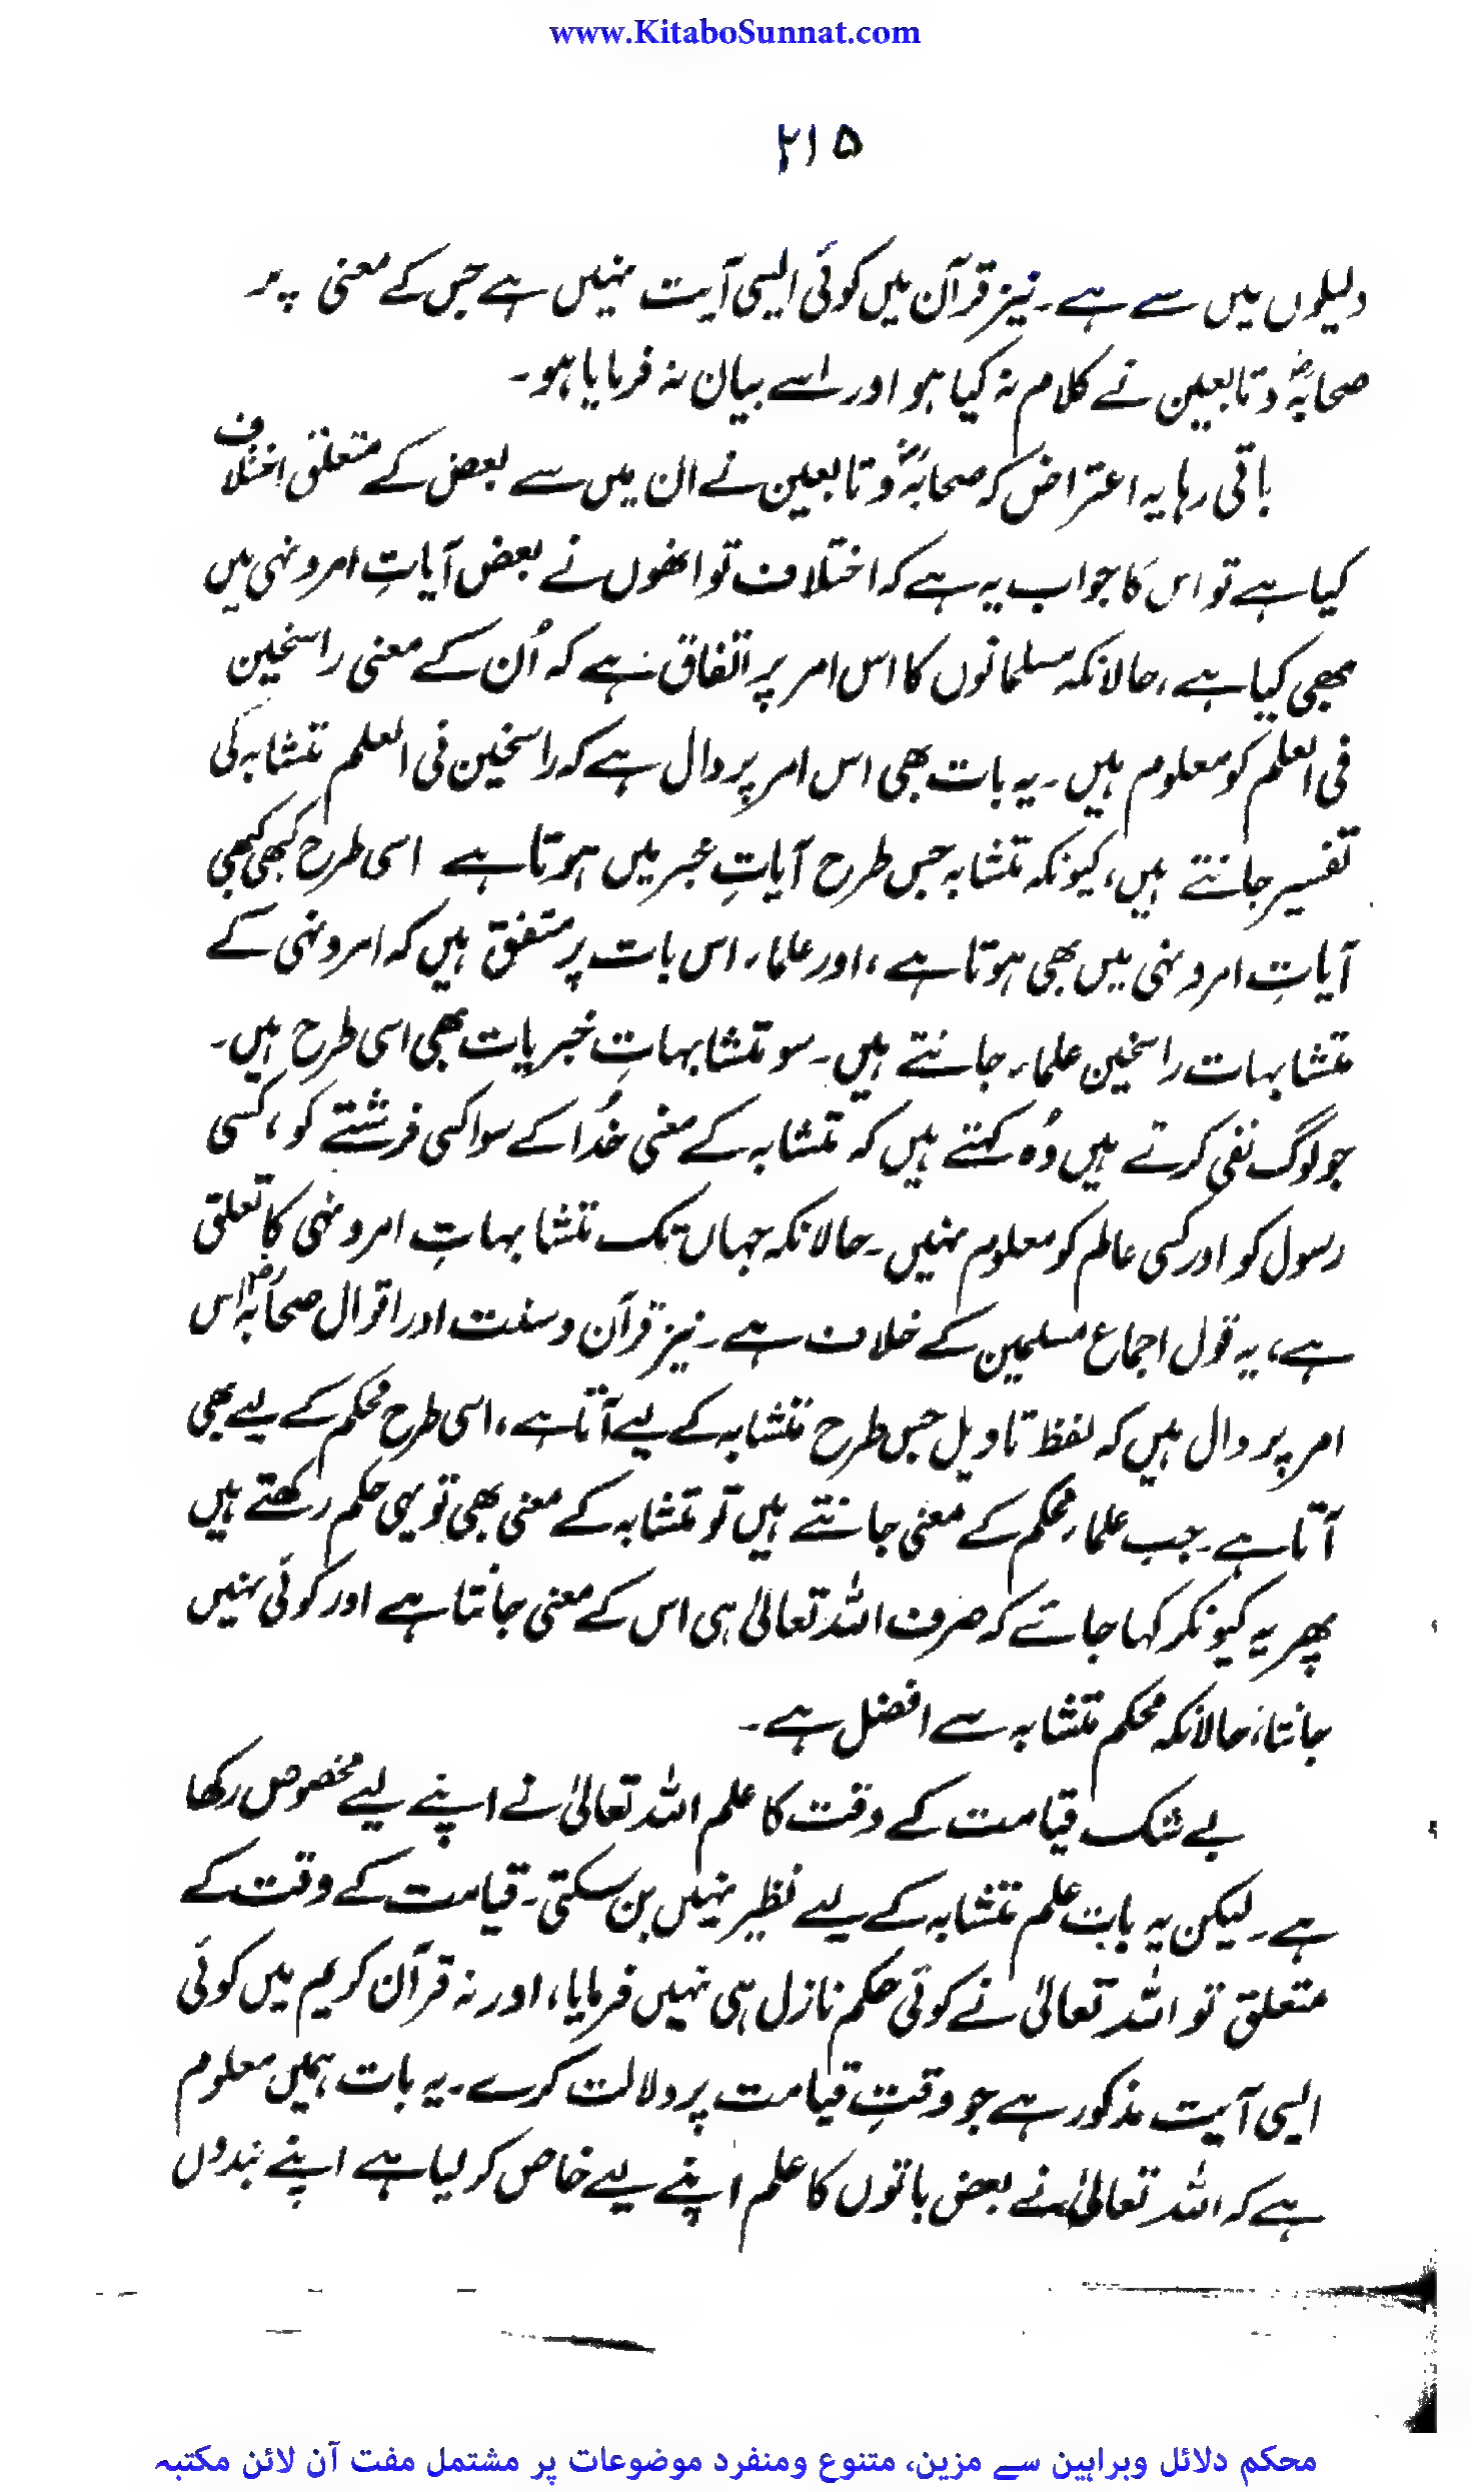 www.KitaboSunnat.com
۲۱۵
دلیلوں میں سے ہے۔ نیز قرآن میں کوئی ایسی آیت نہیں ہے جس کے معنی پر
صحابہؓ و تابعین نے کلام نہ کیا ہو اور اسے بیان نہ فرمایا ہو۔
باقی رہا یہ اعتراض کہ صحابہؓ و تابعین نے ان میں سے بعض کے متعلق اختلاف
کیا ہے تو اس کا جواب یہ ہے کہ اختلاف تو انھوں نے بعض آیاتِ امر و نہی میں
بھی کیا ہے، حالانکہ مسلمانوں کا اس امر پر اتفاق ہے کہ اُن کے معنی راسخین
فی العلم کو معلوم ہیں۔ یہ بات بھی اس امر پر دال ہے کہ راسخین فی العلم متشابہ کی
تفسیر جانتے ہیں، کیونکہ متشابہ جس طرح آیاتِ خبر میں ہوتا ہے اسی طرح کبھی کبھی
آیاتِ امر و نہی میں بھی ہوتا ہے، اور علماء اس بات پر متفق ہیں کہ امر و نہی کے
متشابہات راسخین علماء جانتے ہیں۔ سو متشابہاتِ خبریات بھی اسی طرح ہیں۔
جو لوگ نفی کرتے ہیں وُہ کہتے ہیں کہ متشابہ کے معنی خُدا کے سوا کسی فرشتے کو، کسی
رسول کو اور کسی عالم کو معلوم نہیں۔ حالانکہ جہاں تک متشابہاتِ امر و نہی کا تعلق
ہے، یہ قول اجماع مسلمین کے خلاف ہے۔ نیز قرآن و سنت اور اقوال صحابہؓ اس
امر پر دال ہیں کہ لفظ تاویل جس طرح متشابہ کے لیے آتا ہے، اسی طرح محکم کے لیے بھی
آتا ہے۔ جب علماء محکم کے معنی جانتے ہیں تو متشابہ کے معنی بھی تو یہی حکم رکھتے ہیں
پھر یہ کیونکر کہا جائے کہ صرف اللہ تعالیٰ ہی اس کے معنی جانتا ہے اور کوئی نہیں
جانتا، حالانکہ محکم متشابہ سے افضل ہے۔
بے شک قیامت کے وقت کا علم اللہ تعالیٰ نے اپنے لیے مخصوص رکھا
ہے۔ لیکن یہ بات علم متشابہ کے لیے نظیر نہیں بن سکتی۔ قیامت کے وقت کے
متعلق تو اللہ تعالیٰ نے کوئی حکم نازل ہی نہیں فرمایا، اور نہ قرآن کریم میں کوئی
ایسی آیت مذکور ہے جو وقتِ قیامت پر دلالت کرے۔ یہ بات ہمیں معلوم
ہے کہ اللہ تعالیٰ نے بعض باتوں کا علم اپنے لیے خاص کر لیا ہے اپنے بندوں
محکم دلائل وبراہین سے مزین، متنوع ومنفرد موضوعات پر مشتمل مفت آن لائن مکتبہ